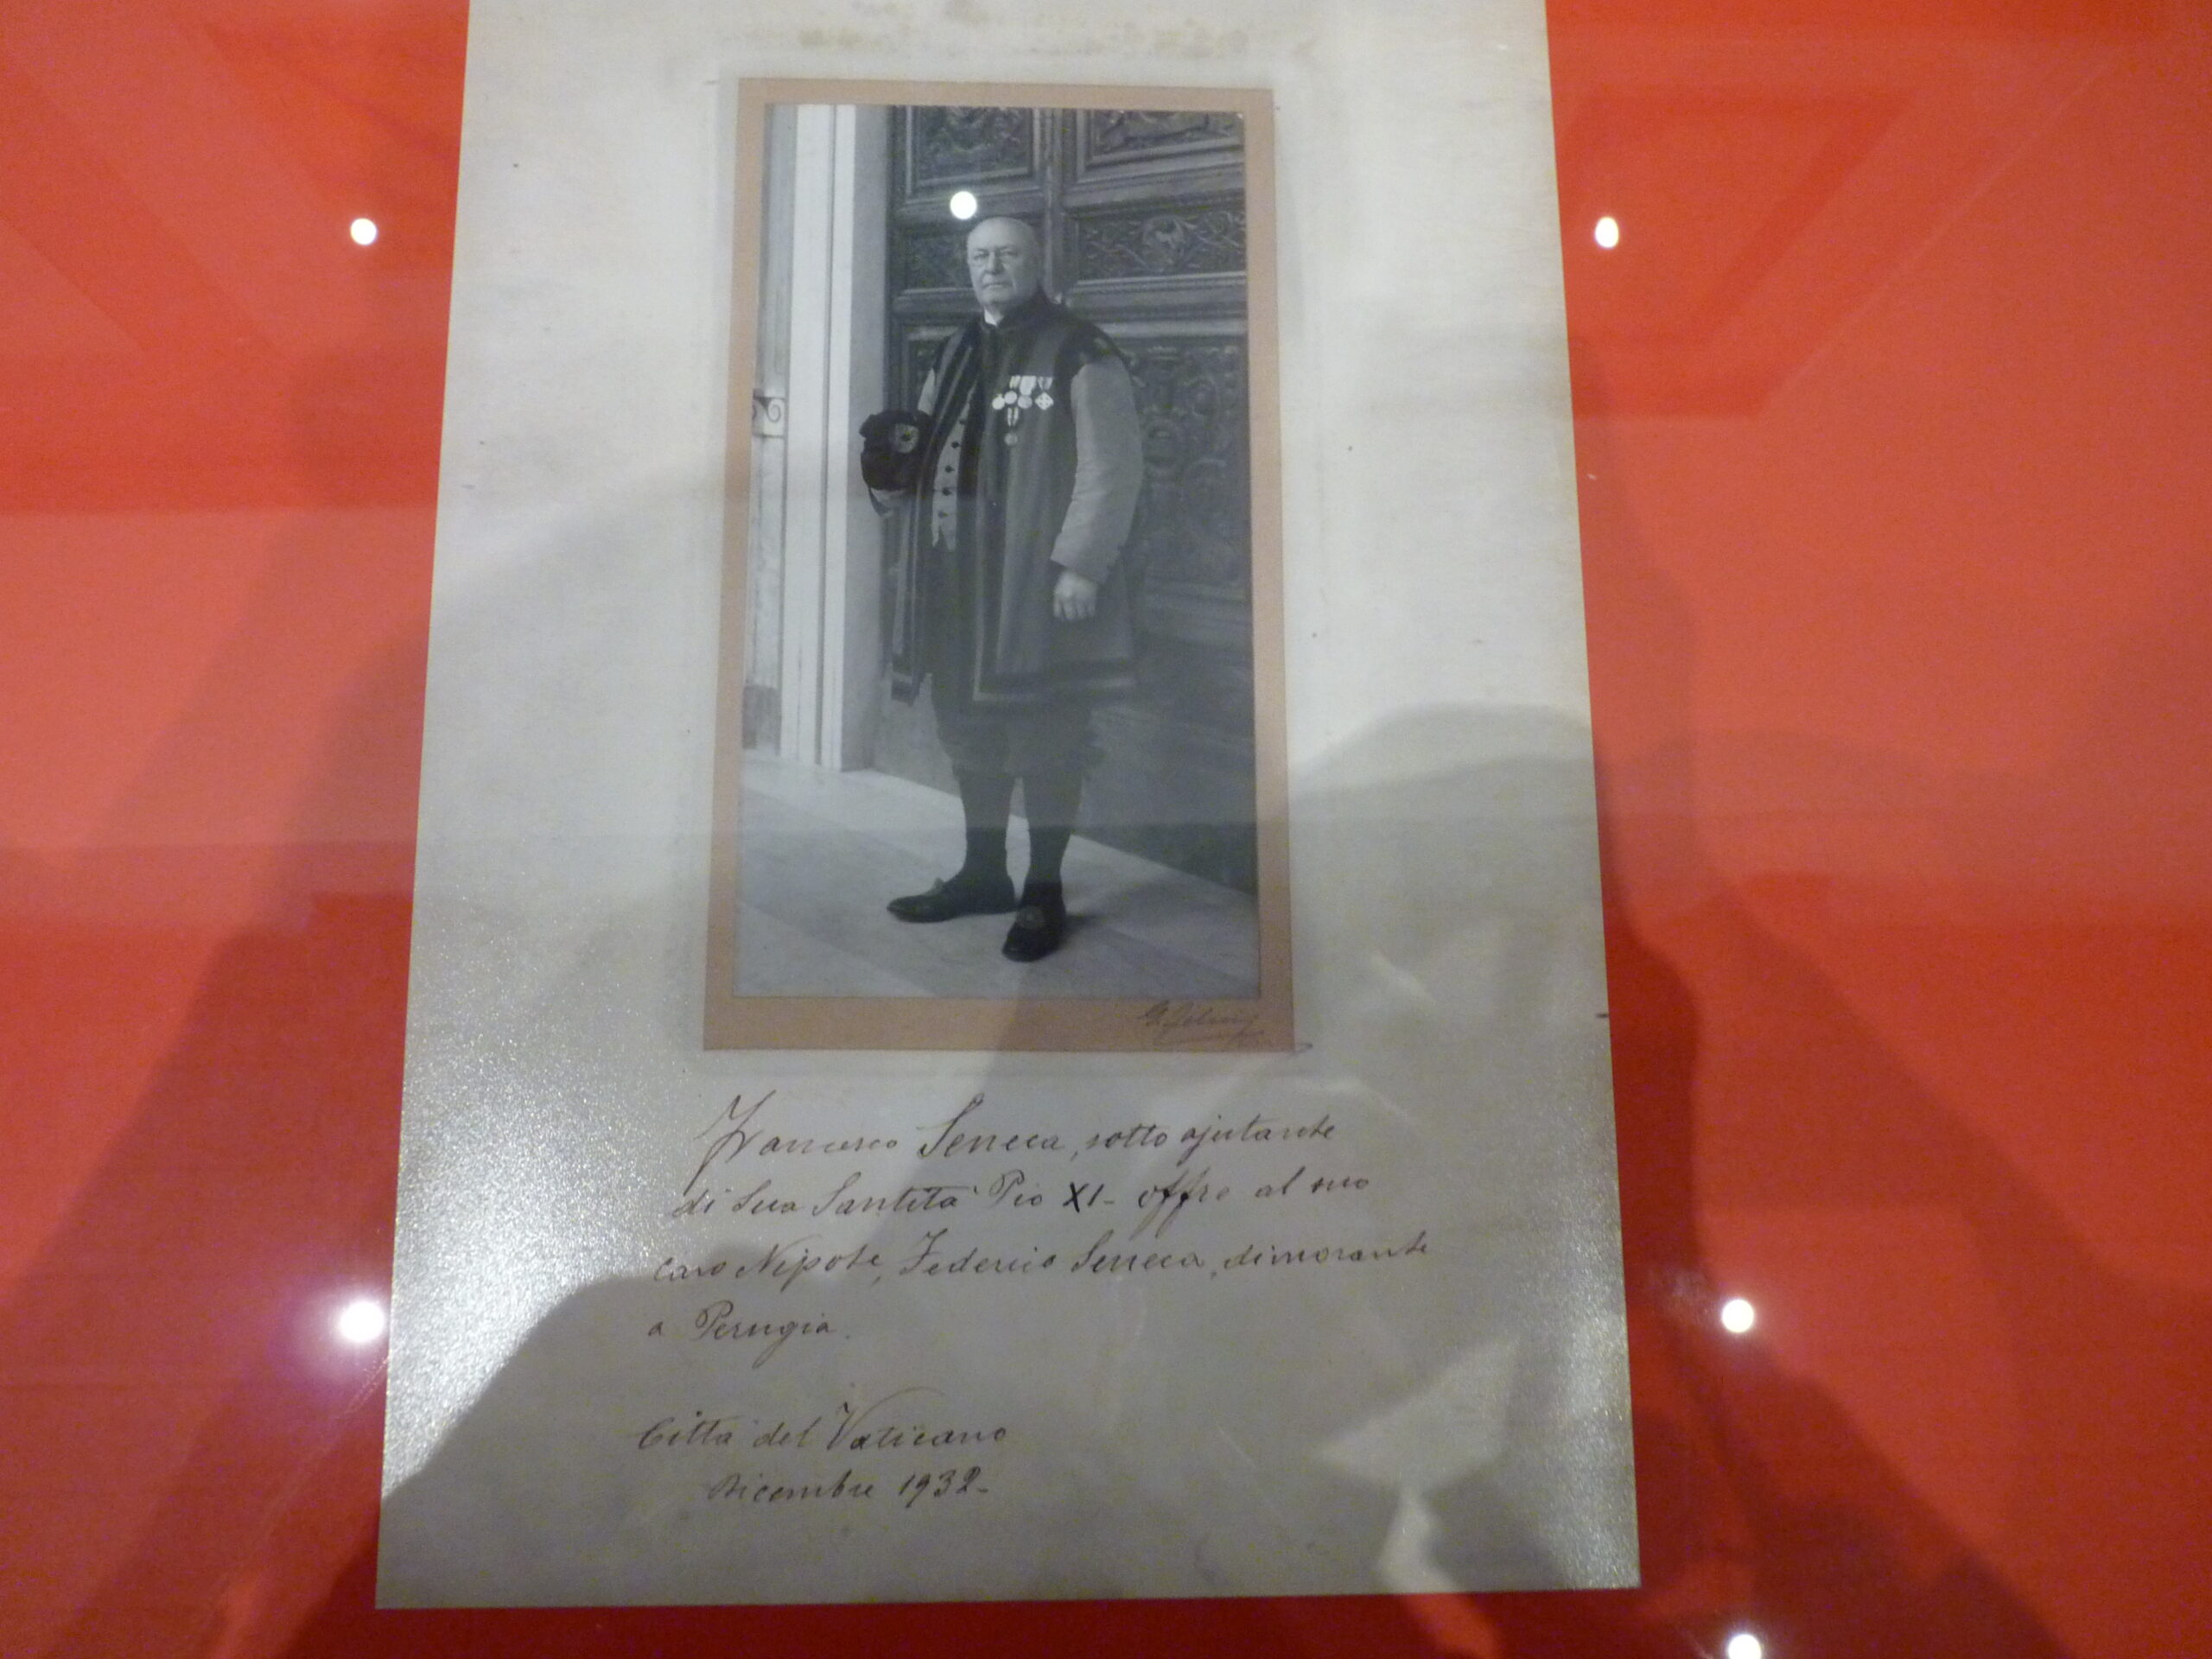 Francesco Seneca, sotto ajutante
di Sua Santità Pio XI - offre al suo
caro Nipote, Federico Seneca, dimorante
a Perugia.
Città del Vaticano
Dicembre 1932-